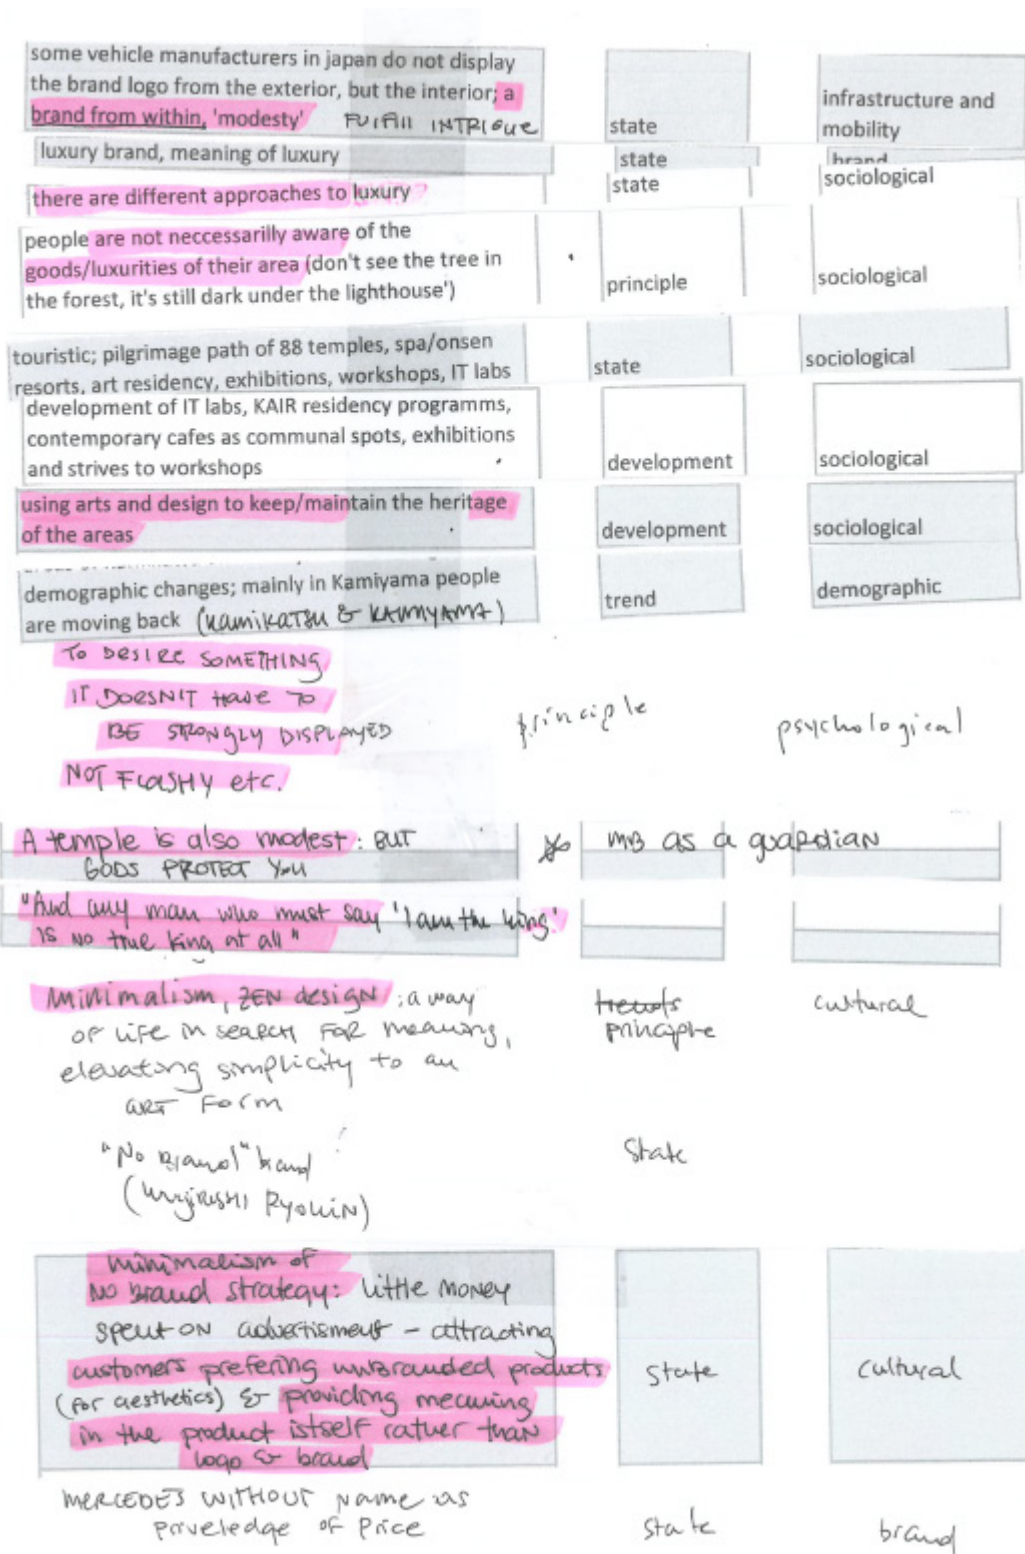 some vehicle manufacturers in japan do not display
the brand logo from the exterior, but the interior; a
brand from within, 'modesty' FULFILL INTRIGUE
state
infrastructure and
mobility
luxury brand, meaning of luxury
state
brand
there are different approaches to luxury
state
sociological
people are not neccessarilly aware of the
goods/luxurities of their area (don't see the tree in
the forest, it's still dark under the lighthouse')
principle
sociological
touristic; pilgrimage path of 88 temples, spa/onsen
resorts, art residency, exhibitions, workshops, IT labs
state
sociological
development of IT labs, KAIR residency programms,
contemporary cafes as communal spots, exhibitions
and strives to workshops
development
sociological
using arts and design to keep/maintain the heritage
of the areas
development
sociological
demographic changes; mainly in Kamiyama people
are moving back (KAMIKATSU & KAMIYAMA)
trend
demographic
TO DESIRE SOMETHING
IT DOESN'T HAVE TO
BE STRONGLY DISPLAYED
NOT FLASHY etc.
principle
psychological
A temple is also modest: BUT
GODS PROTECT YOU
MB as a guardian
"And any man who must say 'I am the king'
is no true king at all"
minimalism, ZEN design; a way
of life in search for meaning,
elevating simplicity to an
art form
trends
principle
cultural
"No Brand" brand
(Mujirushi Ryohin)
state
minimalism of
No brand strategy: little money
spent on advertisment - attracting
customers prefering unbranded products
(for aesthetics) & providing meaning
in the product istself rather than
logo & brand
state
cultural
MERCEDES WITHOUT Name as
Priveledge of Price
state
brand